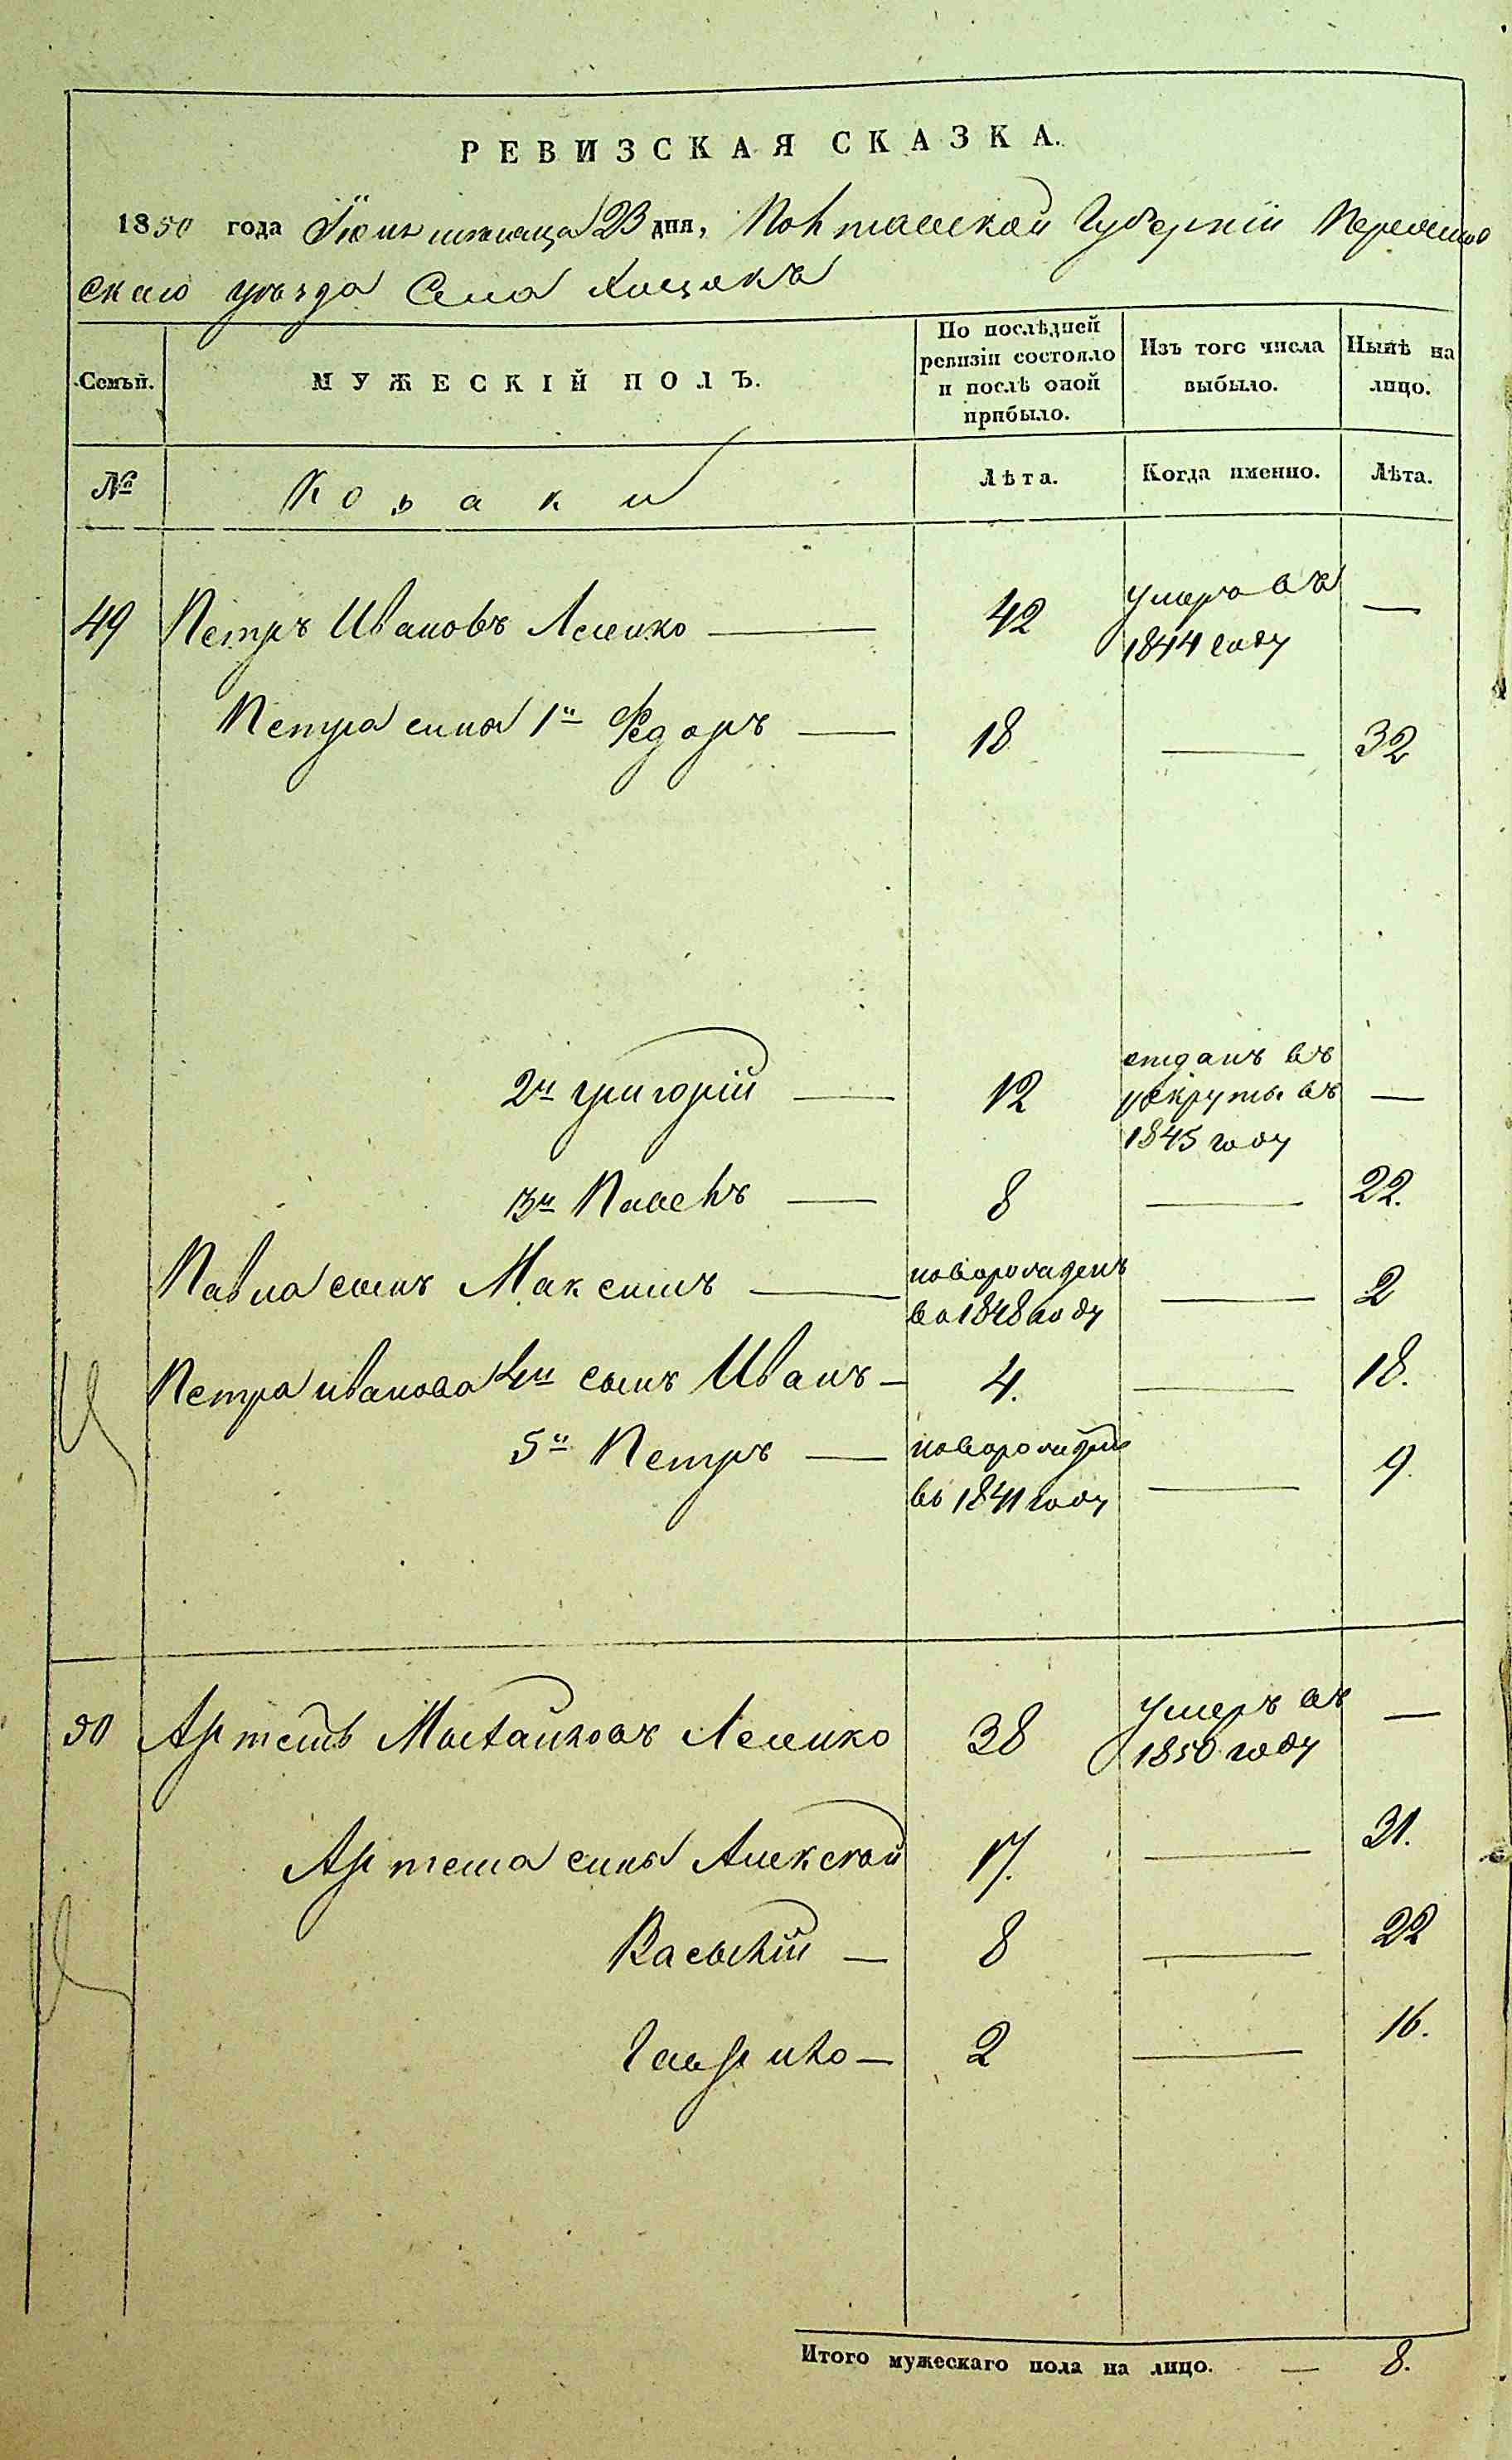 РЕВИЗСКАЯ СКАЗКА.
1850 года Іюня месяца 23 дня, Полтавской Губерніи Переяслов
скаго уезда Села Хоцокъ
Семьи.
МУЖЕСКІЙ ПОЛЪ.
По послѣдней ревизіи состояло и послѣ оной прибыло.
Изъ того числа выбыло.
Нынѣ на лицо.
№
Козаки
Лѣта.
Когда именно.
Лѣта.
49 Петръ Ивановъ 42 умеръ въ —
1844 году
Петра сыны 1й Федоръ — 18 — 32
2й Григорій — 12 отданъ въ
рекруты въ —
1845 году
3й Павелъ — 8 — 22.
Павла сынъ Максимъ — новорожденъ — 2
во 1848 году
Петра Иванова 4й сынъ Иванъ — 4. — 18.
5й Петръ — новорожденъ — 9.
въ 1841 году
50 Артемъ Михайловъ 38 умеръ въ —
1850 году
Артема сыны Алексей 17. — 31.
Василій — 8 — 22
Гаврило — 2 — 16.
Итого мужескаго пола на лицо. — 8.